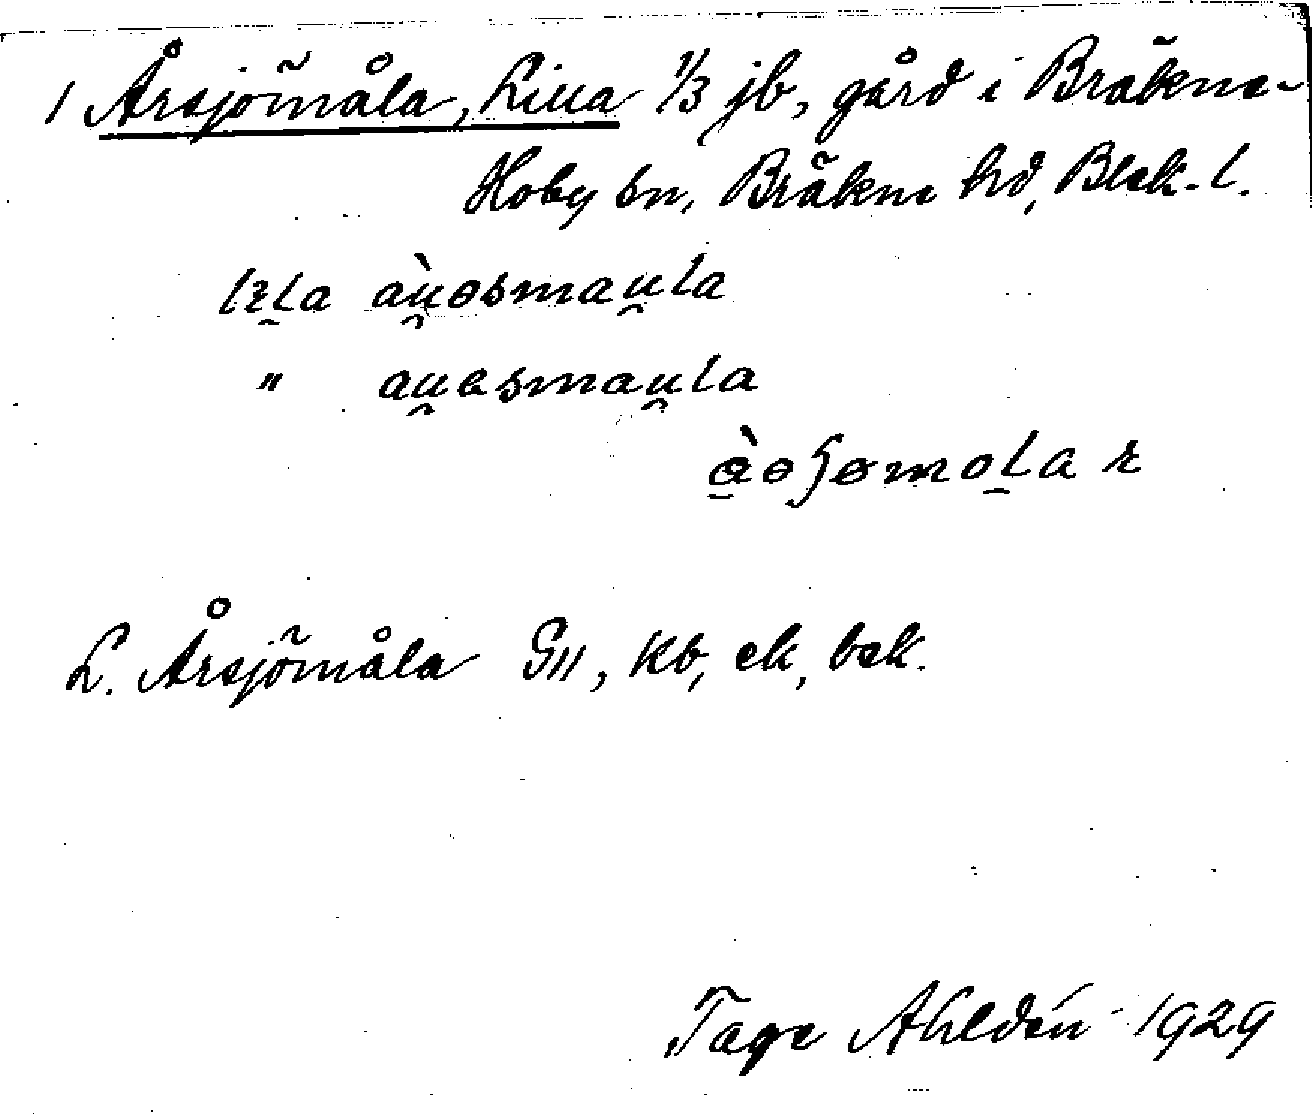 1 Årsjömåla, Lilla 1/3 jb, gård i Bräkne-
Hoby sn, Bräkne hd, Blek. l.
lɪla aù̯əsmau̯la
" au̯ɐsmau̯la
r
L. Årsjömåla GII, kb, ek, bsk.
Tage Ahldén 1929